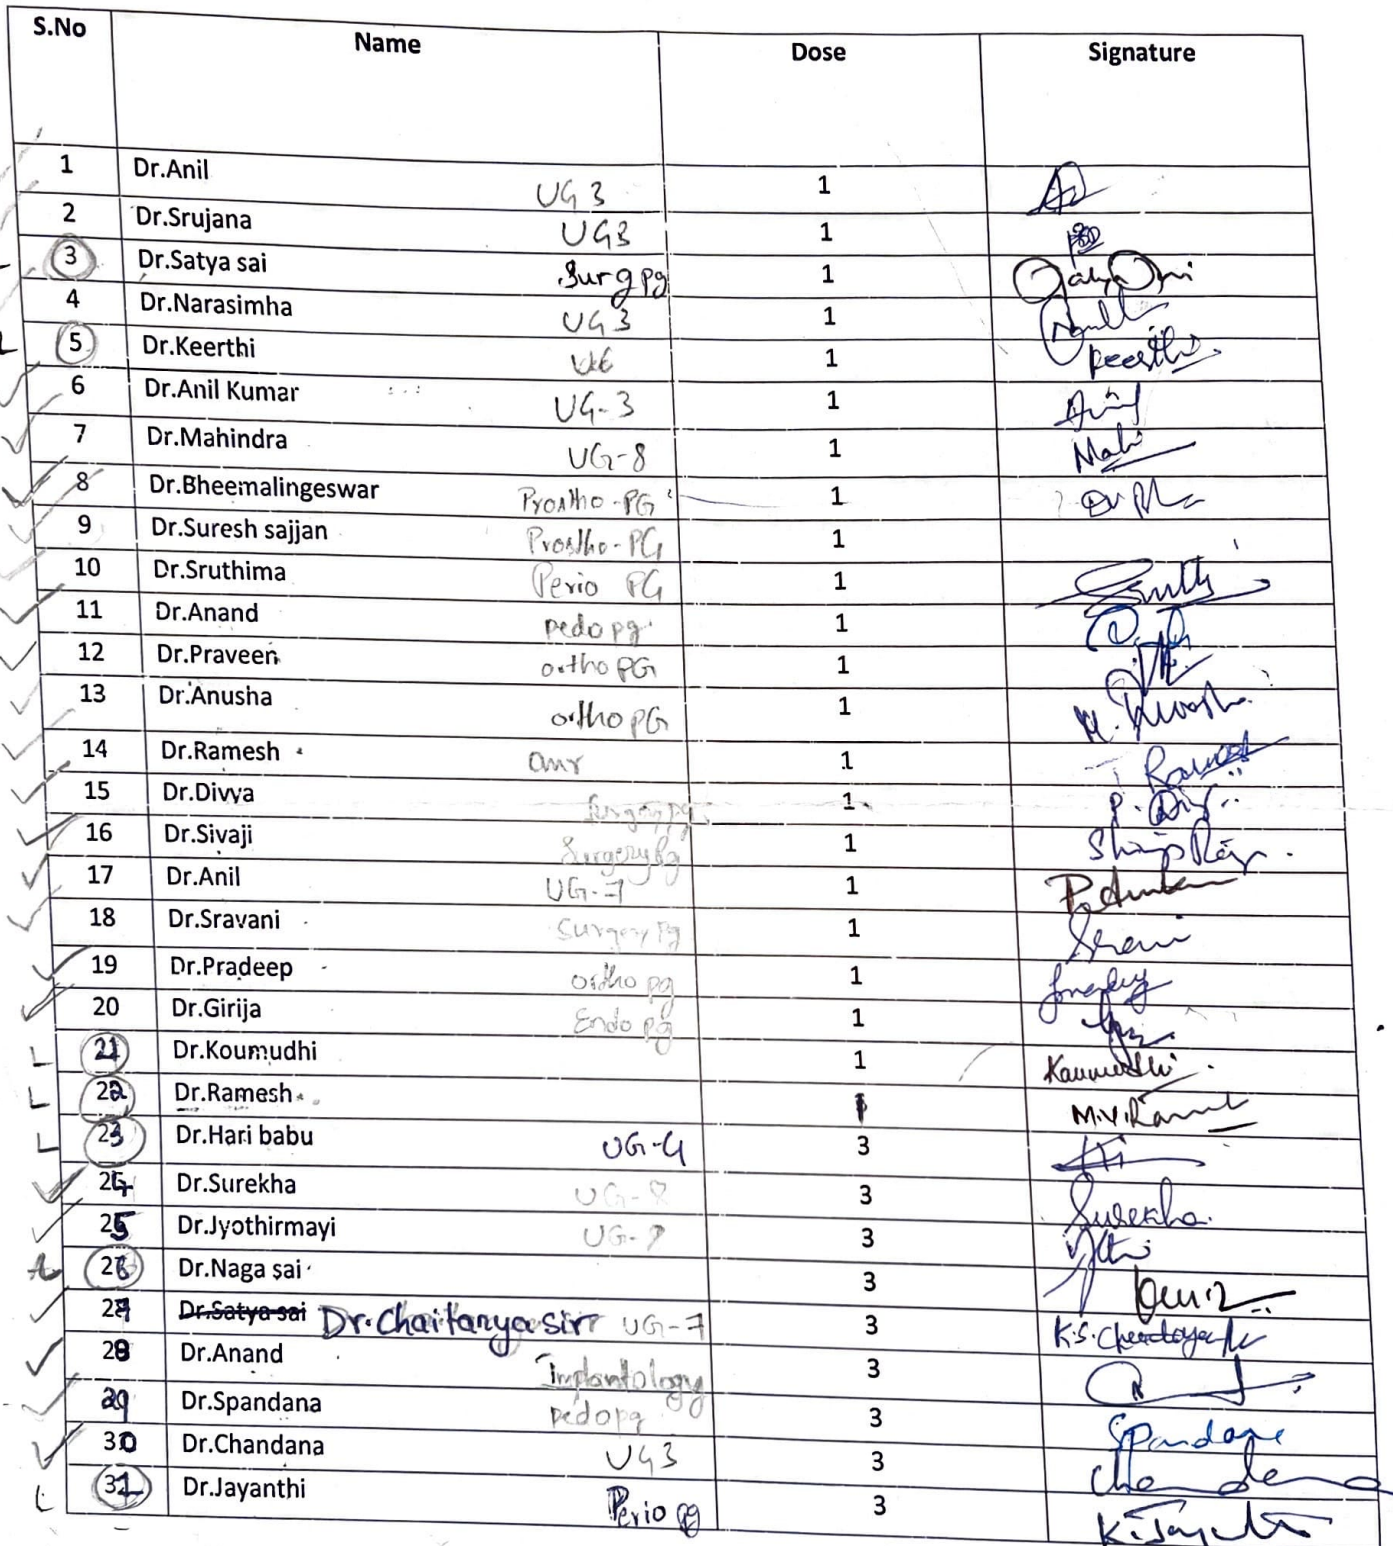 S.No Name Dose Signature
1 Dr.Anil UG 3 1
2 Dr.Srujana UG3 1
3 Dr.Satya sai Surg pg 1 Satya Sai
4 Dr.Narasimha UG3 1
5 Dr.Keerthi 1 Keerthi
6 Dr.Anil Kumar UG-3 1 Anil
7 Dr.Mahindra UG-8 1 Mahi
8 Dr.Bheemalingeswar Prostho-PG 1
9 Dr.Suresh sajjan Prostho-PG 1
10 Dr.Sruthima Perio PG 1 Sruthi
11 Dr.Anand pedo pg 1
12 Dr.Praveen ortho PG 1
13 Dr.Anusha ortho PG 1
14 Dr.Ramesh omr 1 T Ramesh
15 Dr.Divya Surgery pg 1 P. Div
16 Dr.Sivaji Surgery pg 1
17 Dr.Anil UG-7 1
18 Dr.Sravani Surgery Pg 1
19 Dr.Pradeep ortho pg 1
20 Dr.Girija Endo pg 1
21 Dr.Koumudhi 1 Koumudhi
22 Dr.Ramesh 1 M.V.Ramesh
23 Dr.Hari babu UG-4 3
24 Dr.Surekha UG-8 3 Surekha
25 Dr.Jyothirmayi 3
26 Dr.Naga sai 3
27 Dr.Satya sai Dr.Chaitanya sir UG-7 3 K.S.Chaitanya
28 Dr.Anand Implantology 3
29 Dr.Spandana pedo pg 3 Spandana
30 Dr.Chandana UG3 3 Chandana
31 Dr.Jayanthi Perio pg 3 K.Jayanthi